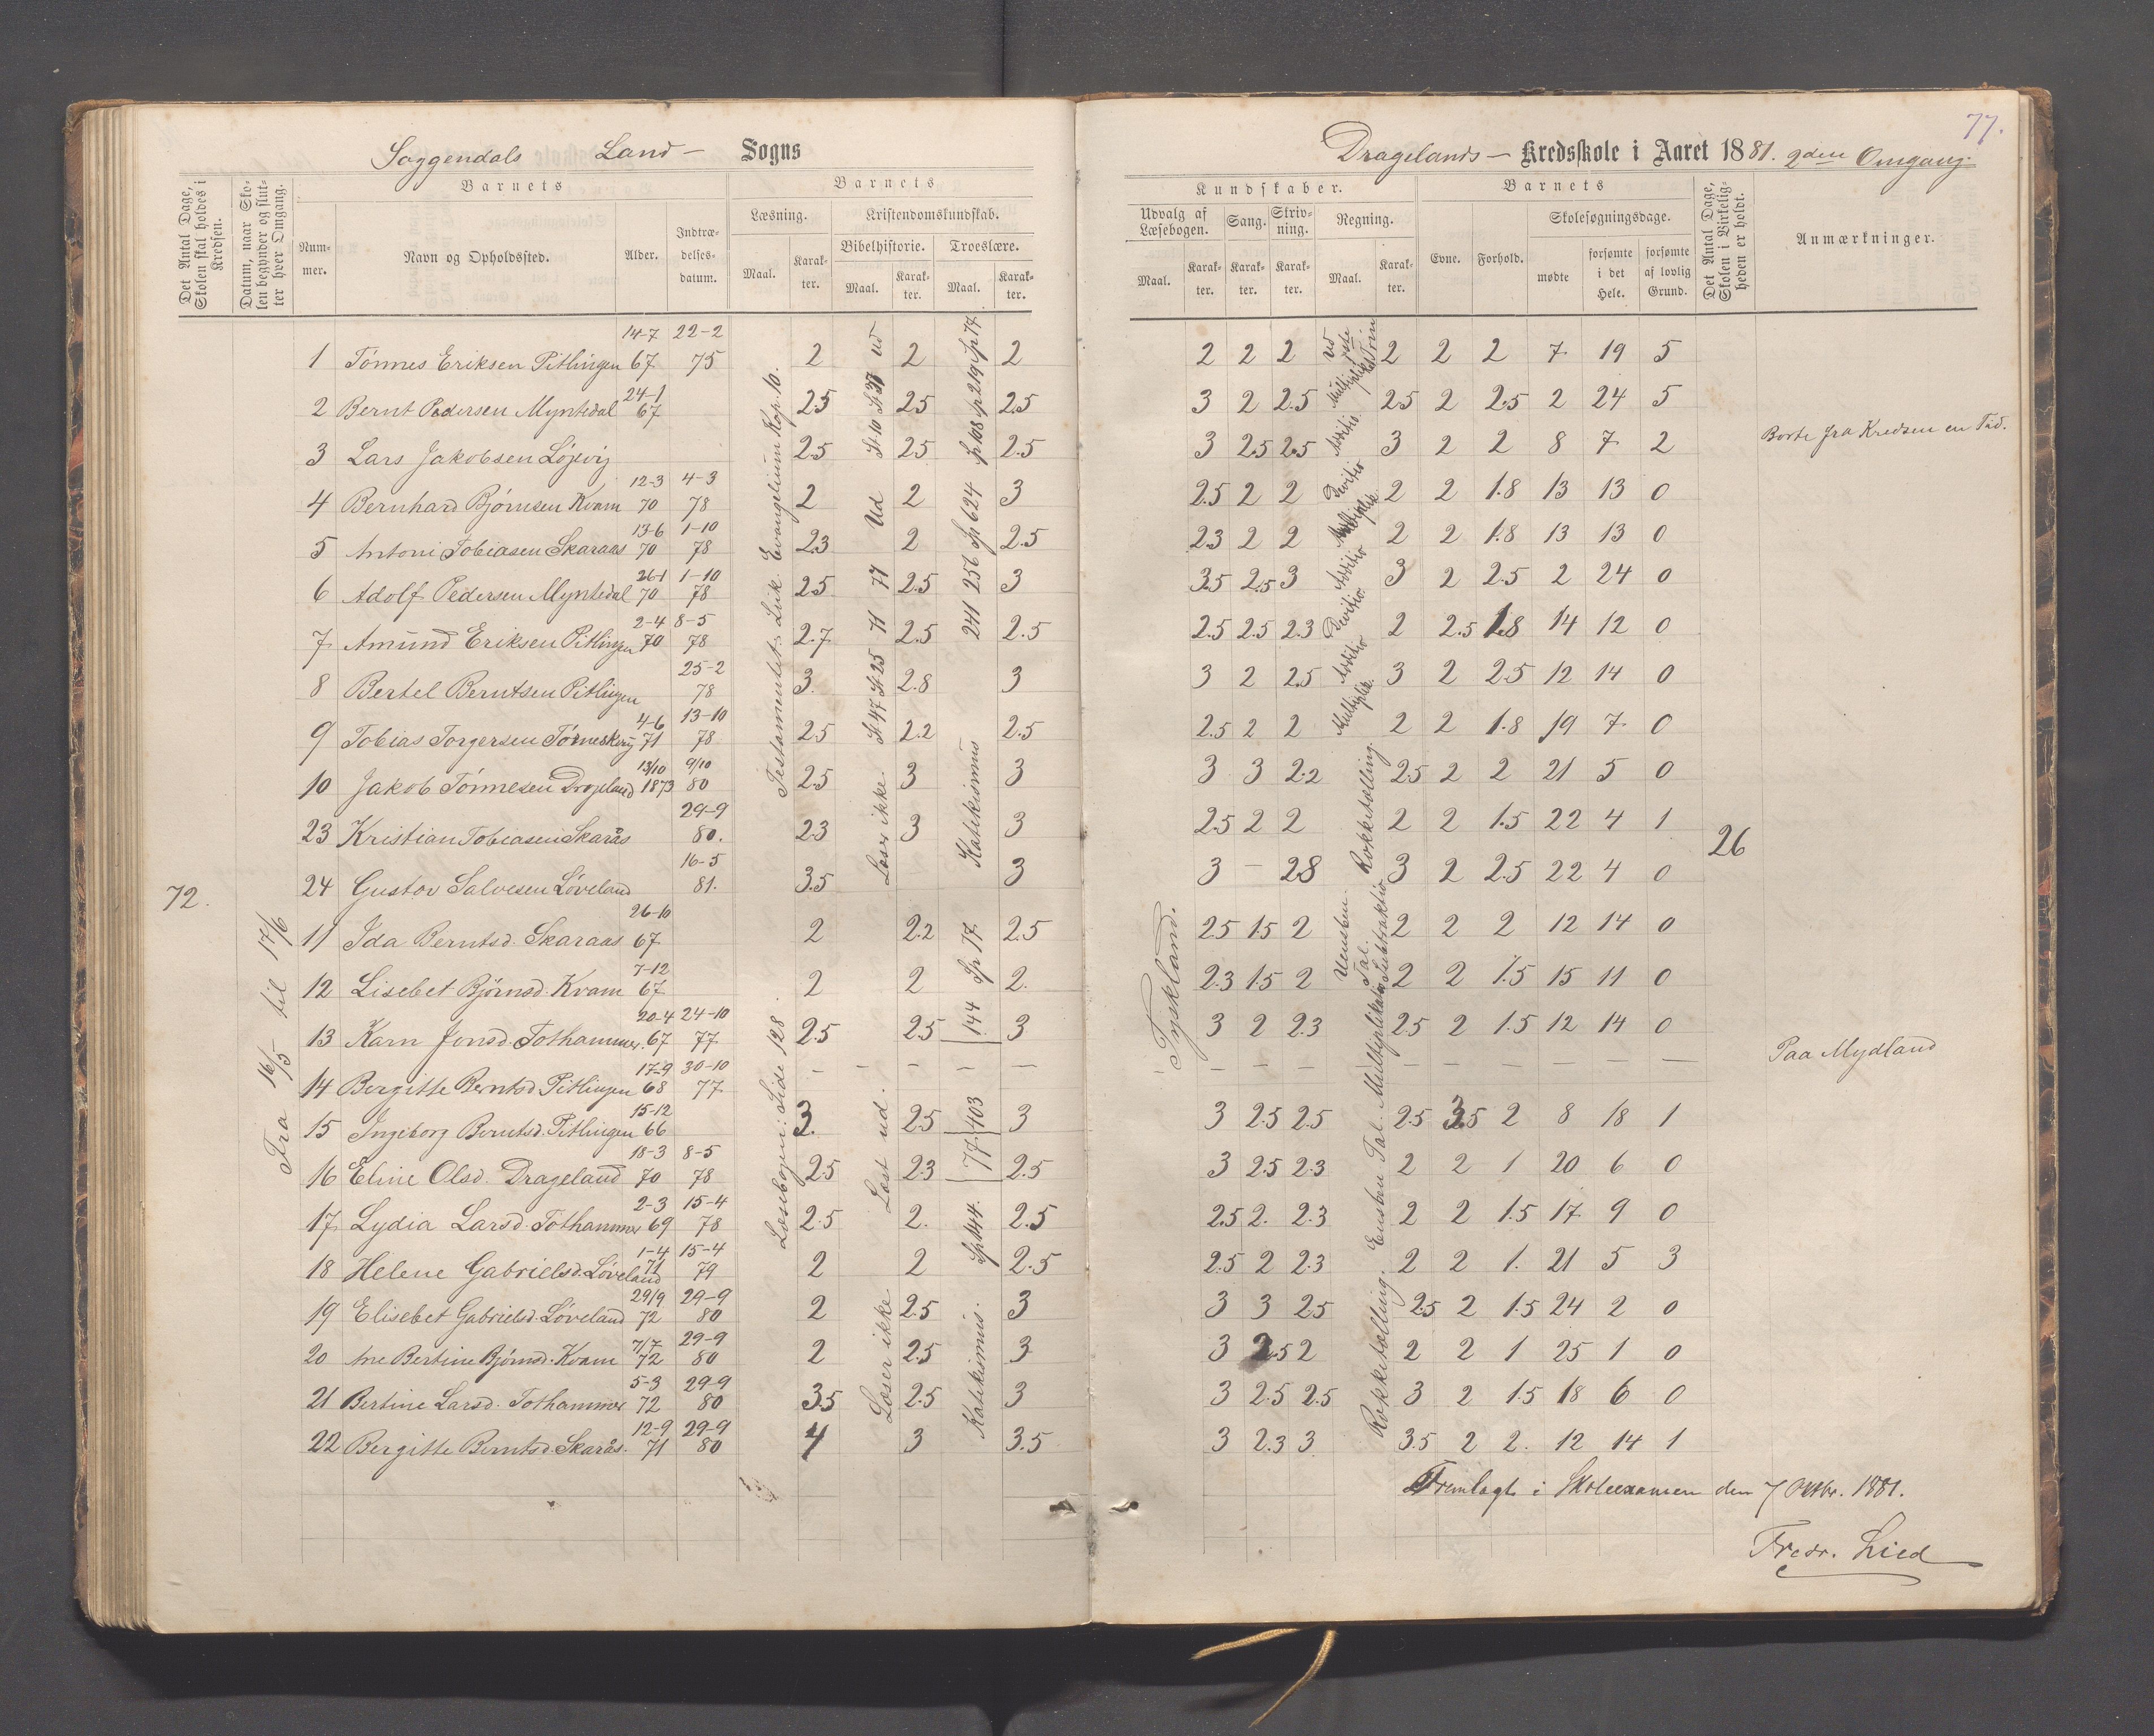 77.
Soggendals Land- Sogns
Dragelands- Kredsskole i Aaret 1881. 2den Omgang.
Det Antal Dage, Skolen skal holdes i Kredsen.
Datum, naar Skolen begynder og slutter hver Omgang.
Barnets
Nummer.
Navn og Opholdssted.
Alder.
Indtrædelsesdatum.
Barnets
Læsning.
Maal.
Karakter.
Kristendomskundskab.
Bibelhistorie.
Maal.
Karakter.
Troeslære.
Maal.
Karakter.
Kundskaber.
Udvalg af Læsebogen.
Maal.
Karakter.
Sang.
Karakter.
Skrivning.
Karakter.
Regning.
Maal.
Karakter.
Barnets
Evne.
Forhold.
Skolesøgningsdage.
mødte
forsømte i det Hele.
forsømte af lovlig Grund.
Det Antal Dage, Skolen i Virkeligheden er holdt.
Anmærkninger.
72.
Fra 16/5 til 17/6
Testamentet: Luk. Evangelium Kap. 10.
Læsebogen: Side 128.
Læser ikke
Læst ud.
Læser ikke
Katekismus
Katekismus.
Tyskland.
Rokketælling.
Rokketælling. Eensben Tal. Multiplikation Subtraktio
26
1 Tönnes Eriksen Pitlingen 14-7 67 22-2 75 2 2 2 2 2 2 2 2 2 7 19 5
2 Bernt Pedersen Myntedal 24-1 67 2.5 2.5 2.5 3 2 2.5 2.5 2 2.5 2 24 5
3 Lars Jakobsen Löyevig 2.5 2.5 2.5 3 2.5 2.5 3 2 2 8 7 2 Borte fra Kredsen en Tid.
4 Bernhard Bjørnsen Kvam 12-3 70 4-3 78 2 2 3 2.5 2 2 2 2 1.8 13 13 0
5 Antoni Tobiasen Skaraas 13-6 70 1-10 78 2.3 2 2.5 2.3 2 2 2 2 1.8 13 13 0
6 Adolf Pedersen Myntedal 26-1 70 1-10 78 2.5 2.5 3 3.5 2.5 3 3 2 2.5 2 24 0
7 Amund Eriksen Pitlingen 2-4 70 8-5 78 2.7 2.5 2.5 2.5 2.5 2.3 2 2.5 1.8 14 12 0
8 Bertel Berntsen Pitlingen 25-2 78 3. 2.8 3 3 2 2.5 3 2 2.5 12 14 0
9 Tobias Torgersen Tönnesking 4-6 71 13-10 78 2.5 2.2 2.5 2.5 2 2 2 2 1.8 19 7 0
10 Jakob Tönnesen Drageland 13/10 1873 9/10 80 2.5 3 3 3 3 2.2 2.5 2 2 21 5 0
23 Kristian Tobiasen Skarås 29-9 80. 2.3 3 3 2.5 2 2 2 2 1.5 22 4 1
24 Gustav Salvesen Löveland 16-5 81. 3.5 3 3 – 2.8 3 2 2.5 22 4 0
11 Ida Berntsd. Skaraas 26-10 67 2 2.2 2.5 2.5 1.5 2 2 2 2 12 14 0
12 Lisebet Bjørnsd. Kvam 7-12 67 2 2 2. 2.3 1.5 2 2 2 1.5 15 11 0
13 Karn Jonsd. Tothammer. 20-4 67 24-10 77 2.5 2.5 144 3 3 2 2.3 2.5 2 1.5 12 14 0
14 Bergitte Berntsd Pitlingen 17-9 68 30-10 77 – – – – – – – – – – – – – – Paa Mydland
15 Ingeborg Berntsd. Pitlingen 15-12 66 3. 2.5 403 3 3 2.5 2.5 2.5 3.5 2 8 18 1
16 Eline Olsd. Drageland 18-3 70 8-5 78 2.5 2.3 77 2.5 3 2.5 2.3 2 2 1 20 6 0
17 Lydia Larsd. Tothammer 2-3 69 15-4 78 2.5 2. 2.5 2.5 2. 2.3 2 2 1.5 17 9 0
18 Helene Gabrielsd. Löveland 1-4 71 15-4 79 2 2 Sp 144. 2.5 2.5 2 2.3 2 2 1. 21 5 3
19 Elisebet Gabrielsd. Löveland 29/9 72 29-9 80 2 2.5 3 3 3 2.5 2.5 2 1.5 24 2 0
20 Ane Bertine Bjørnsd. Kvam 7/7 72 29-9 80 2 2.5 3 3 2.5 2 2 2 1 25 1 0
21 Bertine Larsd. Tothammer 5-3 72 29-9 80 3.5 2.5 3 3 2.5 2.5 3 2 1.5 18 6 0
22 Bergitte Berntsd. Skarås. 12-9 71 29-9 80 4 3 3.5 3 2.3 3 3.5 2 2. 12 14 1
Fremlagt i Skoleexamen den 7 Oktbr. 1881.
Fredr. Lied